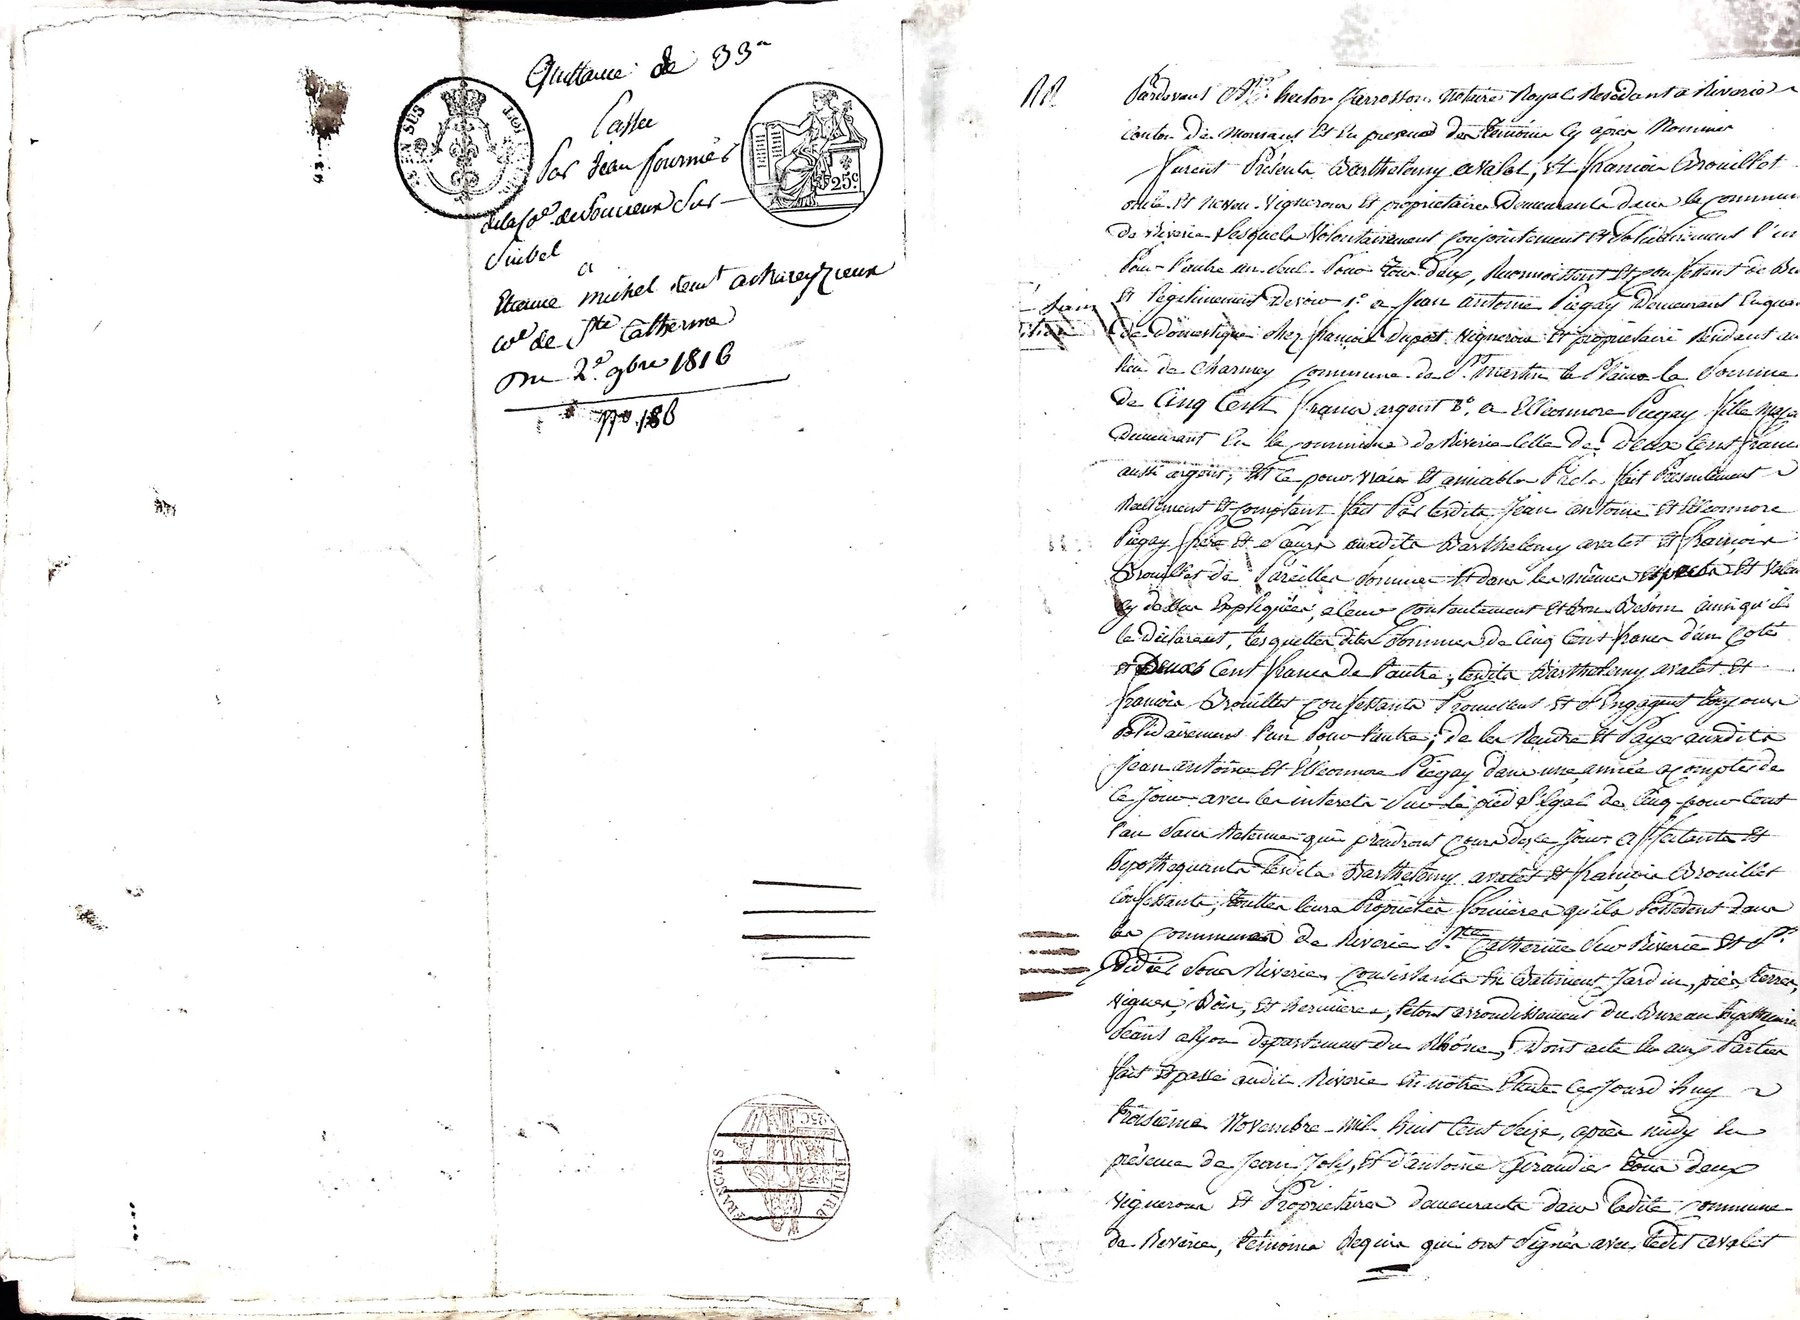 Quittance de 33ᶠ
Passée
Par Jean fournier
de la Coᵉ de Soucieux Sur
Suibel
a
Etienne michel demᵗ achareyzieux
coᵉ de Sᵗᵉ Catherine
Du 2ᵉ 9bre 1816
Nº 186
25ᶜ
EMPIRE
FRANÇAIS
25C
Pardevant Mᵉ hector ferrosson notaire Royal Residant a Riverie
canton de mornant Et En presence des temoins Cy après Nommés
furent Présents Barthelemy avalet, Et françois Brouillet
oncle et neveu vignerons Et propriétaires Demeurants dans la commune
De Riverie Lesquels Volontairement conjointement Et solidairement l'un
Pour l'autre un seul Pour tous deux, Reconnoissent Et confessent de Bien
Et légitimement devoir 1º a Jean antoine Piégay Demeurant En qualité
De domestique chez françois dupot vigneron Et propriétaire Résidant au
lieu de Charmey commune de Sᵗ martin la Plaine la Somme
de Cinq Cent francs argent 2º a Elléonnore Piegay fille majeure
Demeurant En la commune de Riverie Celle de Deux Cent francs
aussi argent, Et ce pour vrais Et amiables Prêts fait Présentement
Réellement Et comptant fait Par lesdits Jean antoine Et Elléonnore
Piegay frère Et Sœur auxdits Barthelemy avalet Et françois
Brouillet de Pareilles Sommes Et dans les mêmes espèces Et valeurs
Cy dessus Expliquées, a leur contentement Et Bon Besoin ainsi qu'ils
le déclarent, lesquelles dites Sommes de Cinq Cent francs d'un coté
et Deux Cent francs de l'autre, lesdits Barthelemy avalet Et
françois Brouillet confessants Promettent Et S'Engagent toujours
Solidairement l'un Pour l'autre, de les Rendre Et Payer auxdits
Jean antoine Et Elléonnore Piegay dans une année a compter de
Ce Jour avec les interets Sur le pied Légal de Cinq pour Cent
l'an Sans Retenue qui prendront cours dès ce Jour affectants Et
hipothequants lesdits Barthelemy avalet Et françois Brouillet
Confessants, toutes leurs Propriétés foncières qu'ils Possedent dans
les communes de Riverie Sᵗᵉ Catherine Sur Riverie Et Sᵗ
Didier Sous Riverie, consistants En Batiment, Jardin, prés, terres,
vignes, Bois, Et hermières, le tout arrondissement du Bureau hypothécaire
Séant a Lyon departement du Rhône, Dont acte lu aux Parties
fait Et passé audit Riverie En notre Etude Ce Jourd'huy
troisième Novembre mil huit Cent Seize, après midy En
présence de Jean Joly, Et d'antoine Giraudier tous deux
vignerons Et Propriétaires demeurants dans ladite commune
de Riverie, temoins Requis qui ont Signés avec ledit avalet